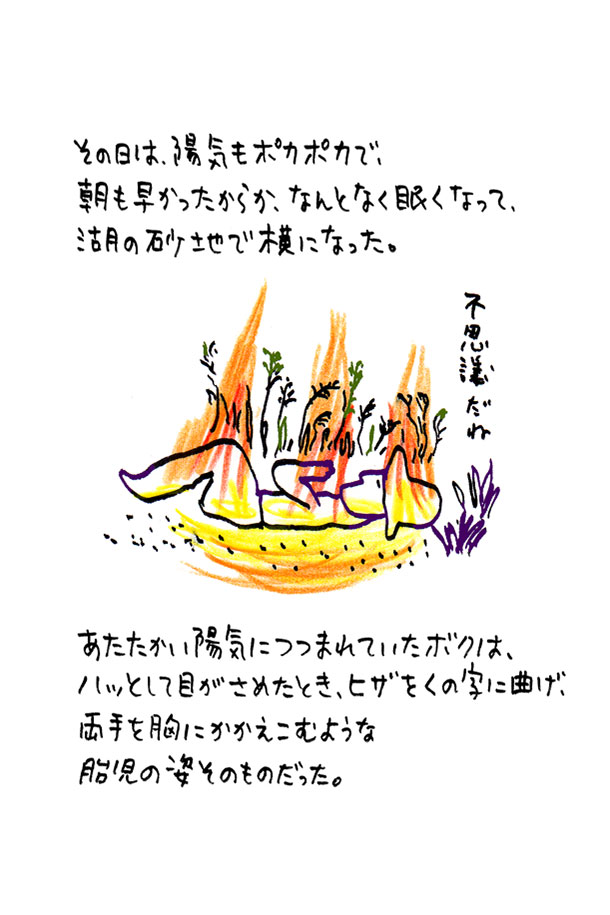 その日は、陽気もポカポカで、
朝も早かったからか、なんとなく眠くなって、
湖の砂地で横になった。
不思議だね
あたたかい陽気につつまれていたボクは、
ハッとして目がさめたとき、ヒザをくの字に曲げ、
両手を胸にかかえこむような
胎児の姿そのものだった。